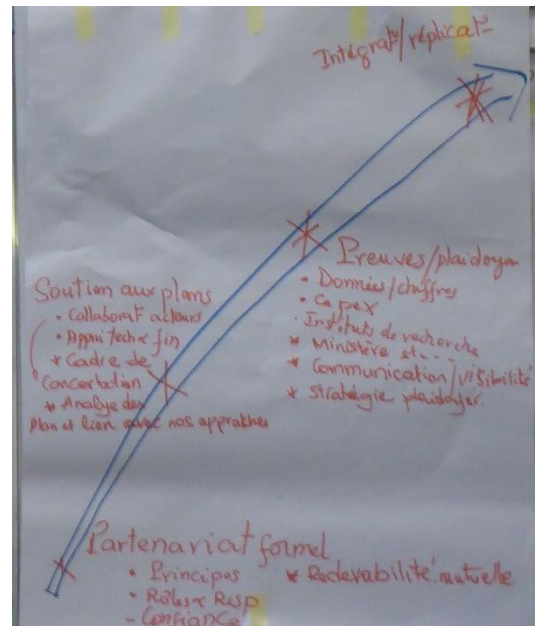 Intégrat°/réplicat°
Preuves/plaidoyer
• Données/chiffres
• Capex
. Instituts de recherche
* Ministère et...
* Communication/visibilité
* Stratégie plaidoyer.
Soution aux plans
• Collaborat° acteurs
• Appui Tech & fin
* Cadre de
Concertation
* Analyse des
Plan et lien avec nos approches
Partenariat formel
• Principes
• Rôles & Resp
- Confiance
* Redevabilité mutuelle